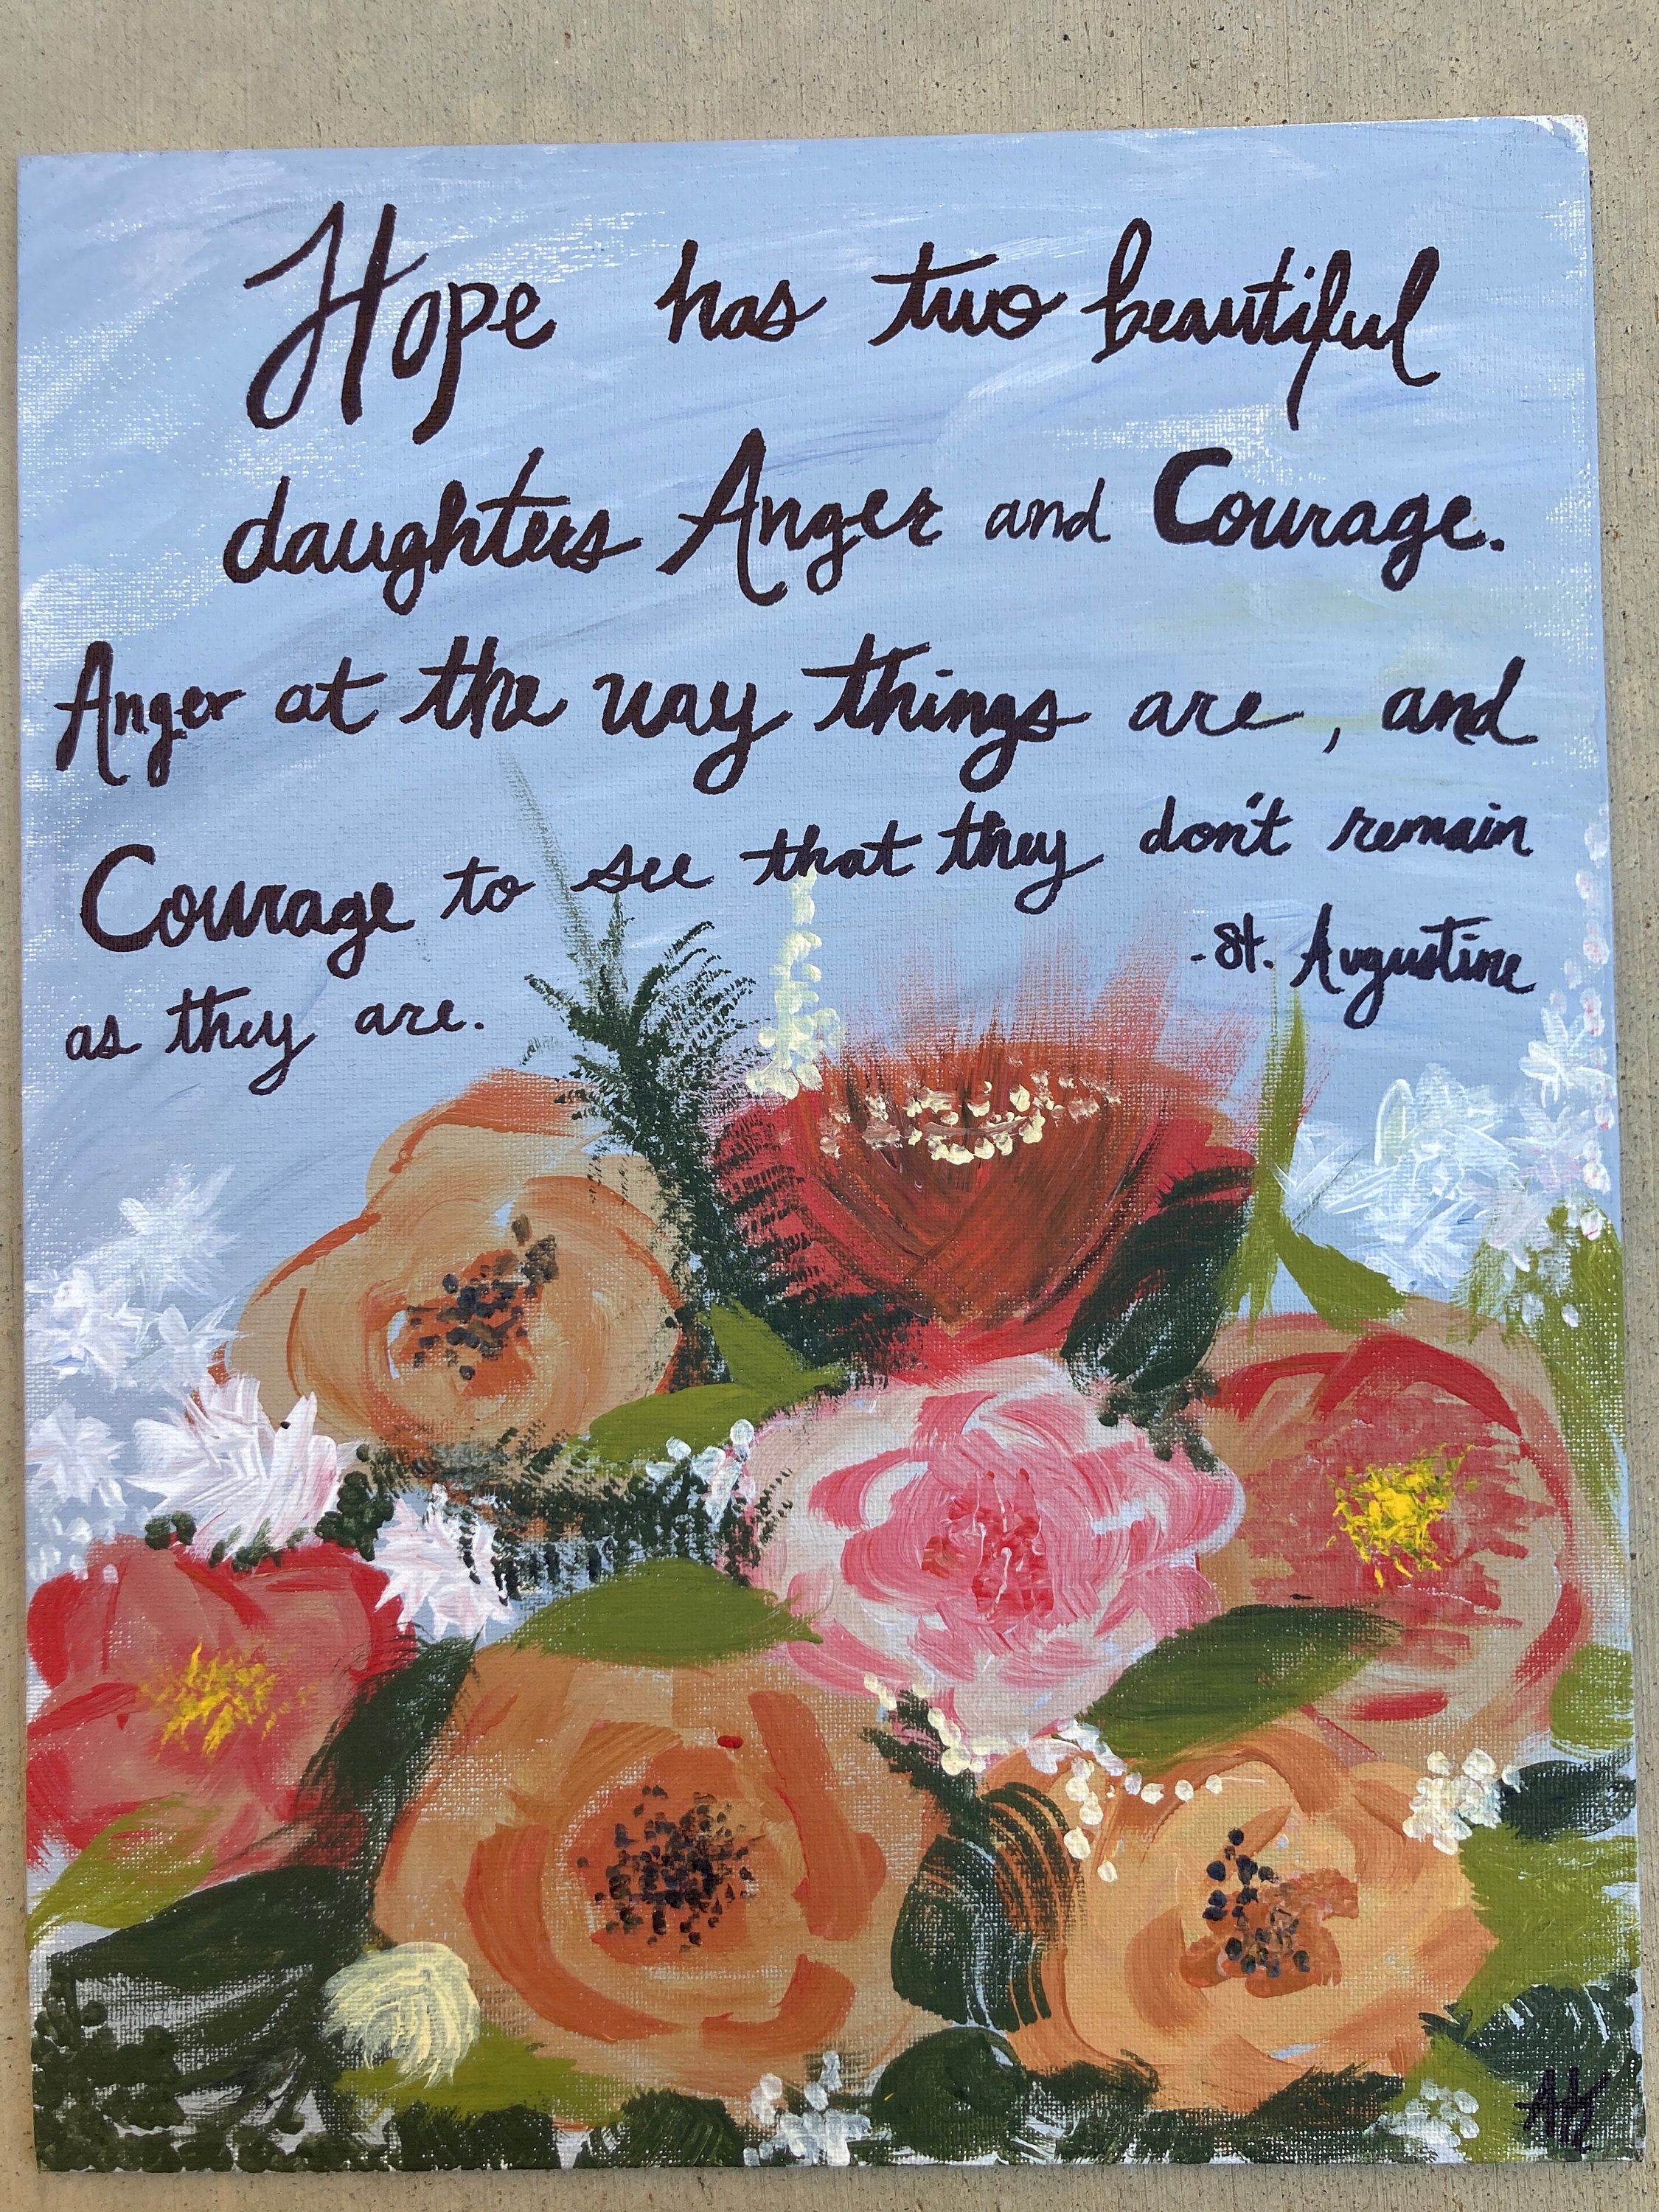 Hope has two beautiful
daughters Anger and Courage.
Anger at the way things are, and
Courage to see that they don't remain
as they are.
- St. Augustine
AK